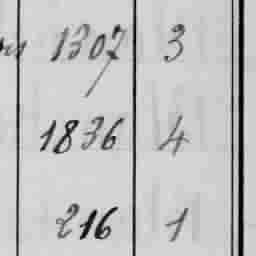 1307 3
1836 4
216 1